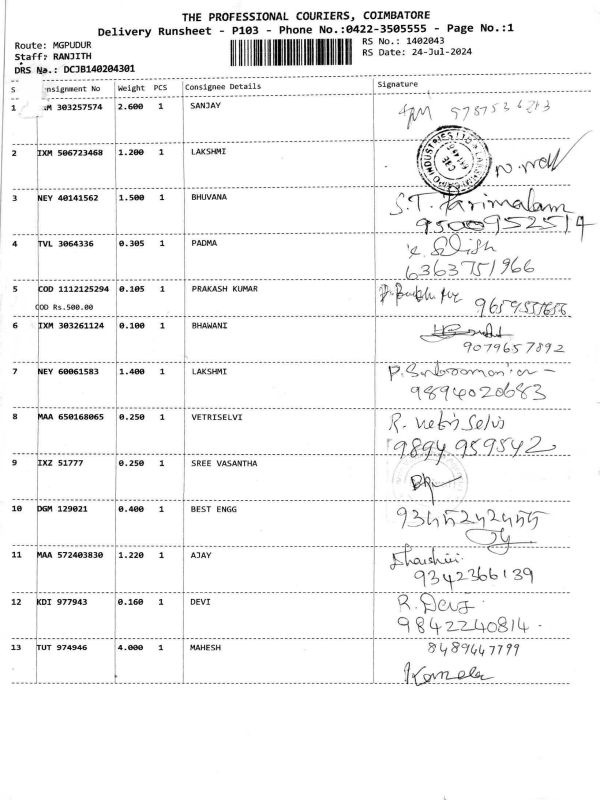 THE PROFESSIONAL COURIERS, COIMBATORE
Delivery Runsheet - P103 - Phone No.:0422-3505555 - Page No.:1
Route: MGPUDUR
RS No.: 1402043
Staff: RANJITH
RS Date: 24-Jul-2024
DRS No.: DCJB140204301
S nsignment No Weight PCS Consignee Details Signature
1 303257574 2.600 1 SANJAY
2 IXM 506723468 1.200 1 LAKSHMI
3 NEY 40141562 1.500 1 BHUVANA S.T. Parimalam
9500952514
4 TVL 3064336 0.305 1 PADMA
6363751966
5 COD 1112125294 0.105 1 PRAKASH KUMAR
COD Rs.500.00
6 IXM 303261124 0.100 1 BHAWANI
9079657892
7 NEY 60061583 1.400 1 LAKSHMI
9894020683
8 MAA 650168065 0.250 1 VETRISELVI R. Vetri Selvi
9894 959542
9 IXZ 51777 0.250 1 SREE VASANTHA
10 DGM 129021 0.400 1 BEST ENGG
11 MAA 572403830 1.220 1 AJAY
9342366139
12 KDI 977943 0.160 1 DEVI R. Devi
9842240814.
13 TUT 974946 4.000 1 MAHESH 8489447799
Kamala